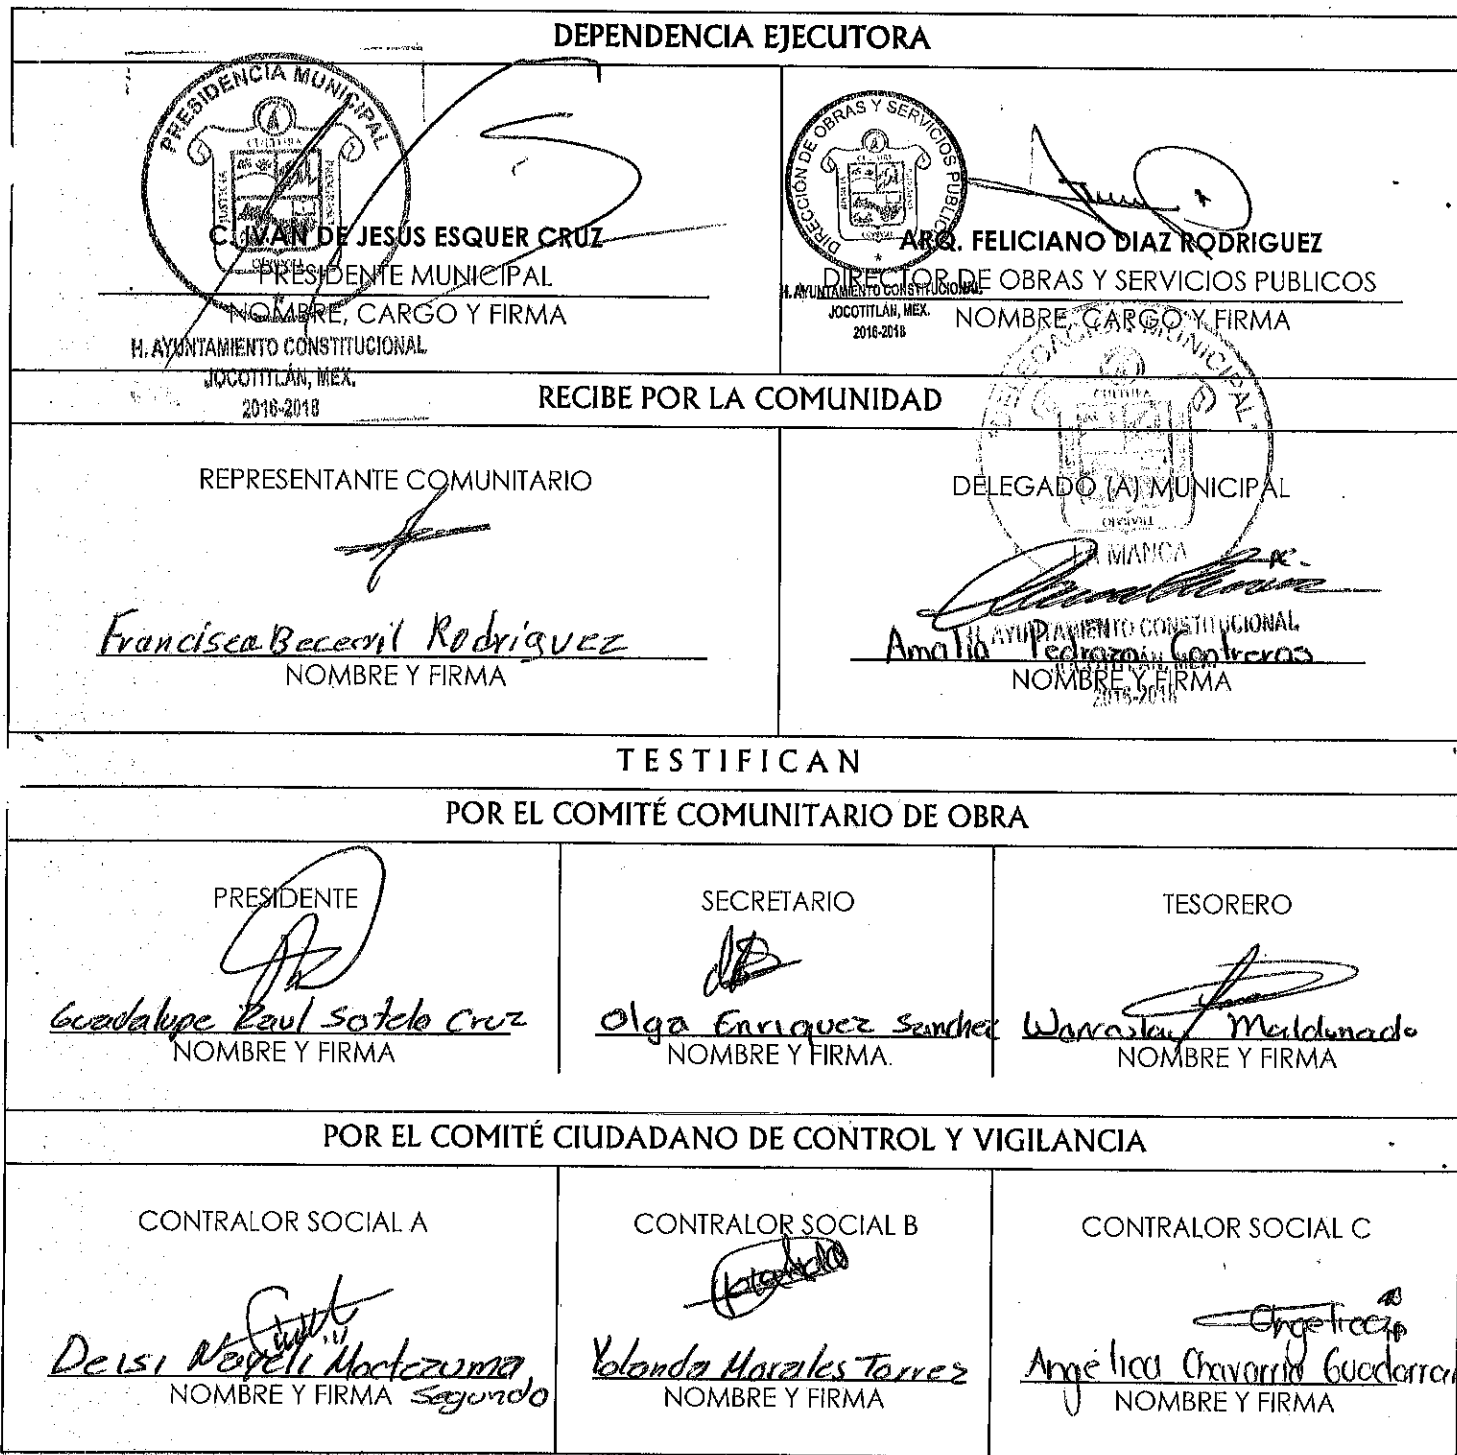 DEPENDENCIA EJECUTORA
PRESIDENCIA MUNICIPAL
CULTURA
JUSTICIA
C. IVAN DE JESÚS ESQUER CRUZ
PRESIDENTE MUNICIPAL
NOMBRE, CARGO Y FIRMA
H. AYUNTAMIENTO CONSTITUCIONAL
JOCOTITLÁN, MEX.
2016-2018
DIRECCIÓN DE OBRAS Y SERVICIOS PUBLICOS
ARQ. FELICIANO DIAZ RODRIGUEZ
DIRECTOR DE OBRAS Y SERVICIOS PUBLICOS
NOMBRE, CARGO Y FIRMA
H. AYUNTAMIENTO CONSTITUCIONAL
JOCOTITLÁN, MEX.
2016-2018
RECIBE POR LA COMUNIDAD
REPRESENTANTE COMUNITARIO
Francisca Becerril Rodriguez
NOMBRE Y FIRMA
DELEGACIÓN MUNICIPAL
CULTURA
DELEGADO (A) MUNICIPAL
TRABAJO
LA MANGA
H. AYUNTAMIENTO CONSTITUCIONAL
Amalia Pedraza Contreras
NOMBRE Y FIRMA
2016-2018
TESTIFICAN
POR EL COMITÉ COMUNITARIO DE OBRA
PRESIDENTE
Guadalupe Raul Sotelo Cruz
NOMBRE Y FIRMA
SECRETARIO
Olga Enriquez Sanchez
NOMBRE Y FIRMA.
TESORERO
Maldonado
NOMBRE Y FIRMA
POR EL COMITÉ CIUDADANO DE CONTROL Y VIGILANCIA
CONTRALOR SOCIAL A
Deisi Nayeli Moctezuma
NOMBRE Y FIRMA Segundo
CONTRALOR SOCIAL B
Yolanda Morales Torrez
NOMBRE Y FIRMA
CONTRALOR SOCIAL C
Angelica
Angélica Chavarria Guadarra
NOMBRE Y FIRMA